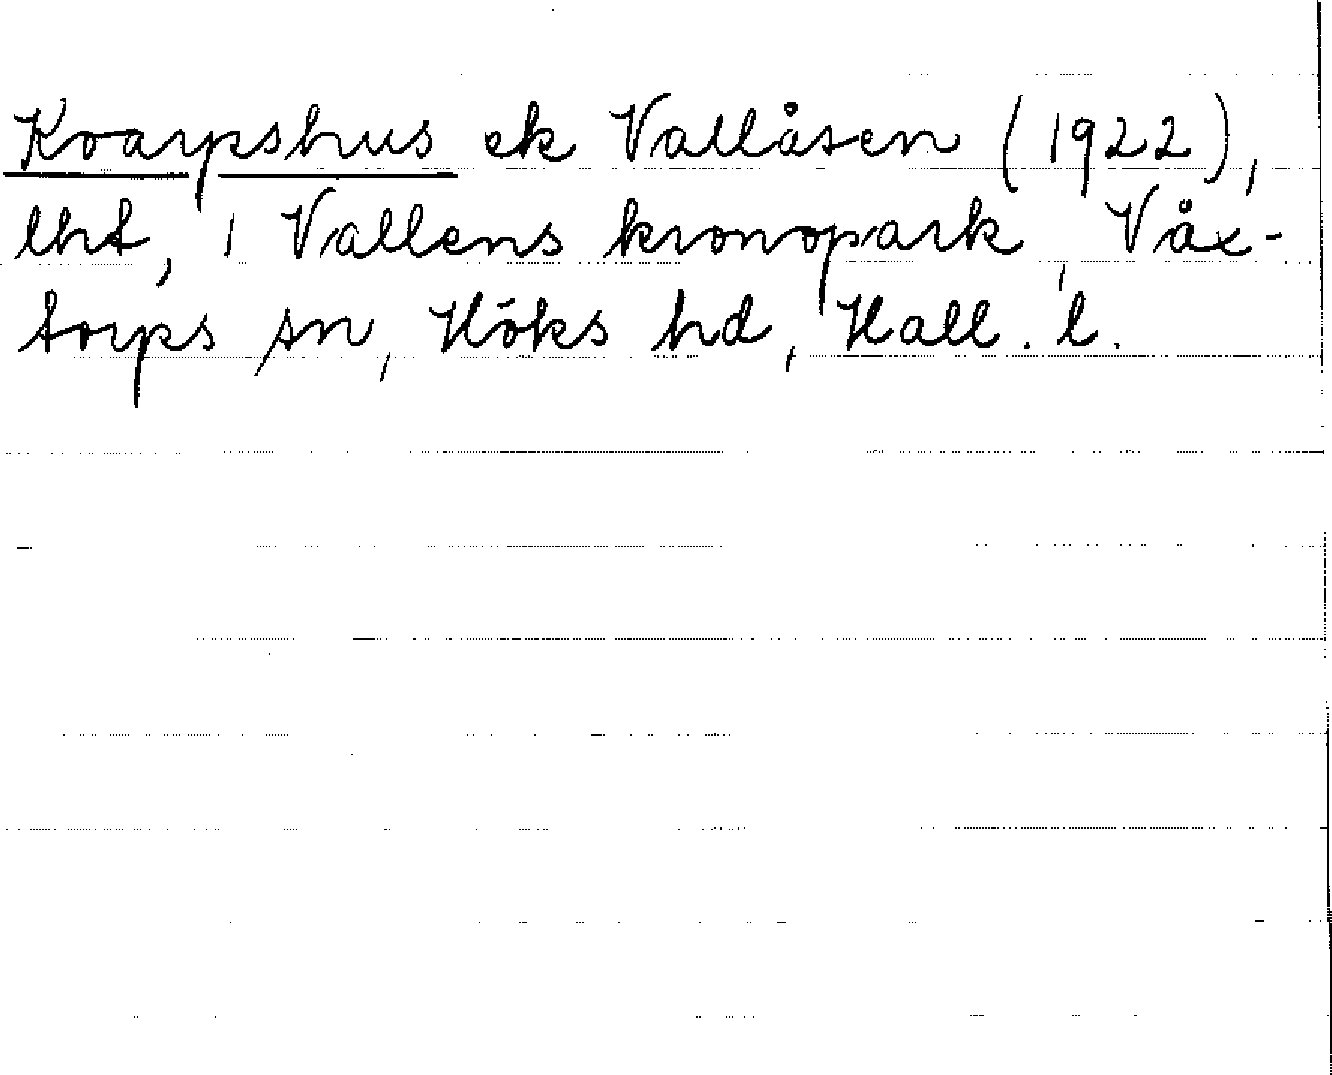 Koarpshus ek Vallåsen (1922),
lht, i Vallens kronopark, Våx-
torps sn, Höks hd, Hall. l.